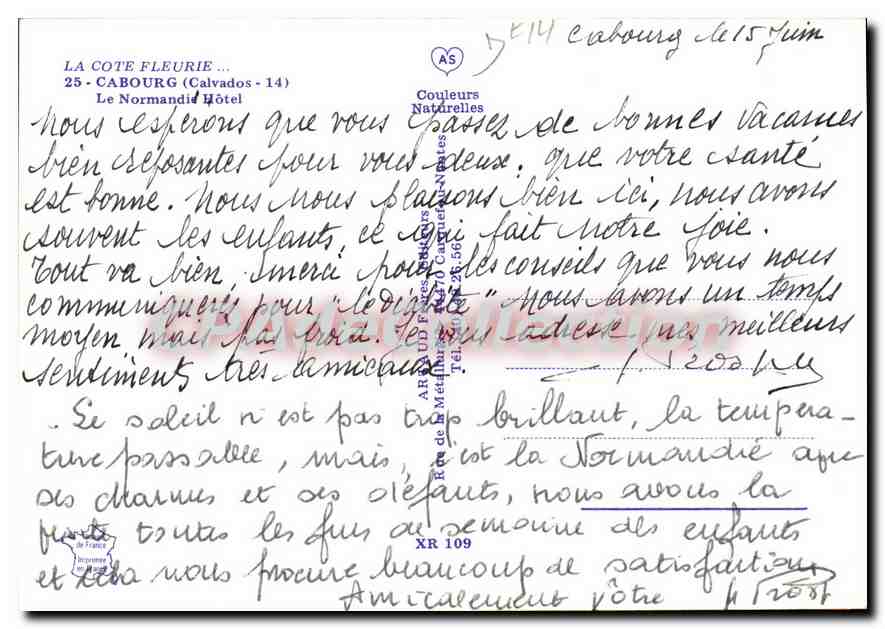 DE14 Cabourg le 15 Juin
LA COTE FLEURIE ...
25 - CABOURG (Calvados - 14)
Le Normandie Hôtel
AS
Couleurs
Naturelles
Nous espérons que vous passez de bonnes vacances
bien reposantes pour vous deux. que votre santé
est bonne. Nous nous plaisons bien ici, nous avons
souvent les enfants, ce qui fait notre joie.
Tout va bien, merci pour les conseils que vous nous
communiquerés pour "le digité" Nous avons un temps
moyen mais pas froid. Je vous adresse mes meilleurs
sentiments très amicaux.
. Le soleil n'est pas trop brillant, la tempéra-
ture passable, mais, c'est la Normandie avec
ses charmes et ses défauts, nous avons la
toutes les fins de semaine des enfants
et cela nous procure beaucoup de satisfaction
Amicalement vôtre
ARTAUD Frères Editeurs
Rue de la Métallurgie 44470 Carquefou-Nantes
XR 109
de France
Imprimée